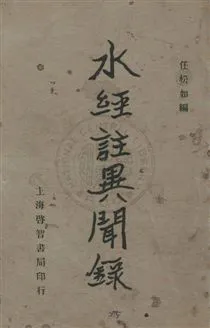 任松如編
水經註異聞錄
上海啓智書局印行